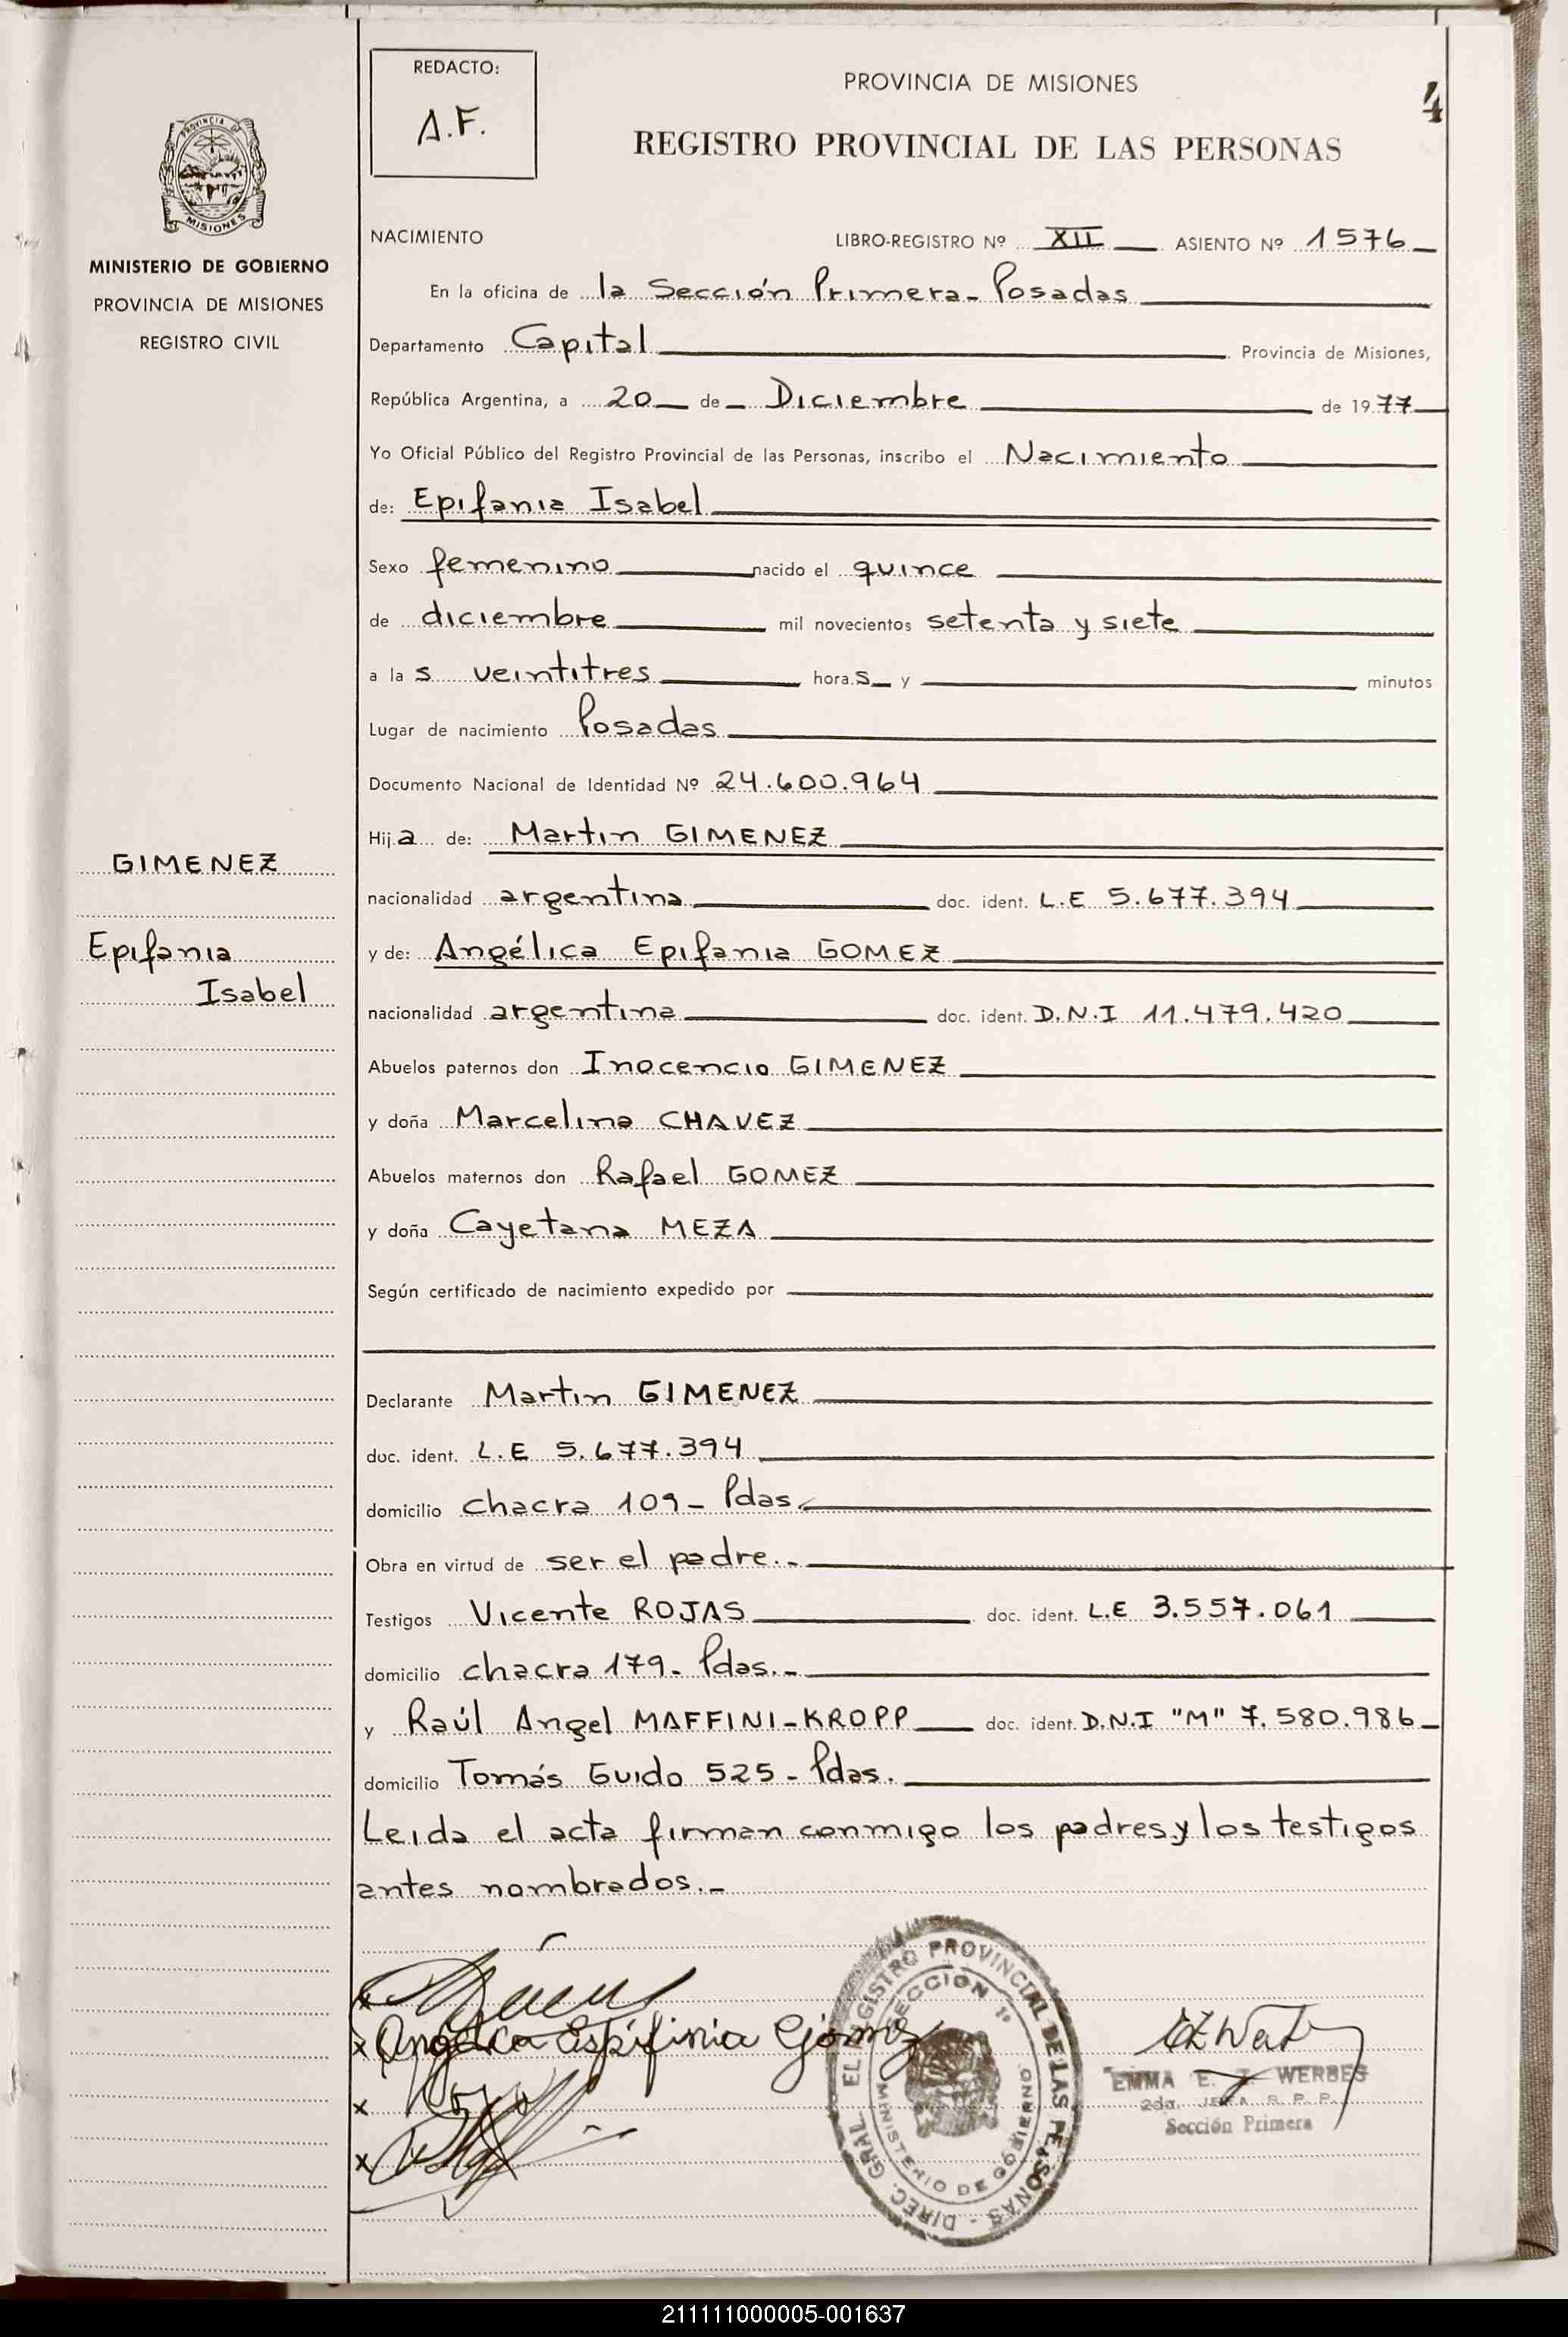 REDACTO:
A.F.
PROVINCIA DE MISIONES
4
REGISTRO PROVINCIAL DE LAS PERSONAS
PROVINCIA DE
MISIONES
MINISTERIO DE GOBIERNO
PROVINCIA DE MISIONES
REGISTRO CIVIL
NACIMIENTO LIBRO-REGISTRO Nº XII ASIENTO Nº 1576
En la oficina de la Sección Primera - Posadas
Departamento Capital Provincia de Misiones,
República Argentina, a 20 de Diciembre de 1977
Yo Oficial Público del Registro Provincial de las Personas, inscribo el Nacimiento
de: Epifania Isabel
Sexo femenino nacido el quince
de diciembre mil novecientos setenta y siete
a las veintitres horas y minutos
Lugar de nacimiento Posadas
Documento Nacional de Identidad Nº 24.600.964
Hija de: Martin GIMENEZ
GIMENEZ
nacionalidad argentina doc. ident. L.E 5.677.394
Epifania
y de: Angélica Epifania GOMEZ
Isabel
nacionalidad argentina doc. ident. D.N.I 11.479.420
Abuelos paternos don Inocencio GIMENEZ
y doña Marcelina CHAVEZ
Abuelos maternos don Rafael GOMEZ
y doña Cayetana MEZA
Según certificado de nacimiento expedido por
Declarante Martin GIMENEZ
doc. ident. L.E 5.677.394
domicilio chacra 109 - Pdas.
Obra en virtud de ser el padre.-
Testigos Vicente ROJAS doc. ident. L.E 3.557.061
domicilio chacra 179 - Pdas.-
y Raúl Angel MAFFINI-KROPP doc. ident. D.N.I "M" 7.580.986
domicilio Tomás Guido 525 - Pdas.
Leida el acta firman conmigo los padres y los testigos
antes nombrados.-
Angelica Espifinia Gomez
DIREC. GRAL. EL REGISTRO PROVINCIAL DE LAS PERSONAS
SECCION 1º
MINISTERIO DE GOBIERNO
EMMA E. WERBES
2da. JEFA R. P. P.
Sección Primera
211111000005-001637